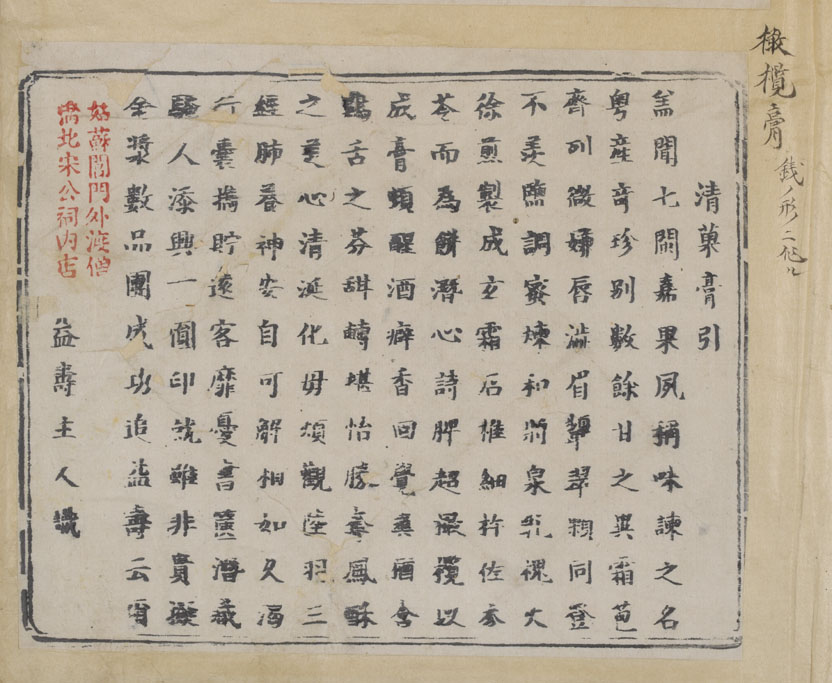 橄欖膏
銭ノ形ニ作ル
清菓膏引
盖聞七閩嘉果夙稱味諫之名
粤産奇珍别數餘甘之異霜苞
齊列微婦唇澁眉顰翠顆同登
不羡鹽調蜜煉和將泉乳 火
徐煎製成玄霜石椎細杵佐参
苓而為餅潛心詩脾超 攬以
成膏頻醒酒癖香回覺爽 含
鷄舌之芬甜轉堪怡勝奪鳳酥
之美心清涎化毋煩觀陸羽三
經肺養神安自可解相如久渴
行囊携貯遠客靡憂書簏潛藏
騷人添興一圓印就雖非貴擬
金漿數品團成功追益壽云爾
姑蘇閶門外渡僧
橋北宋公祠内店
益壽主人識